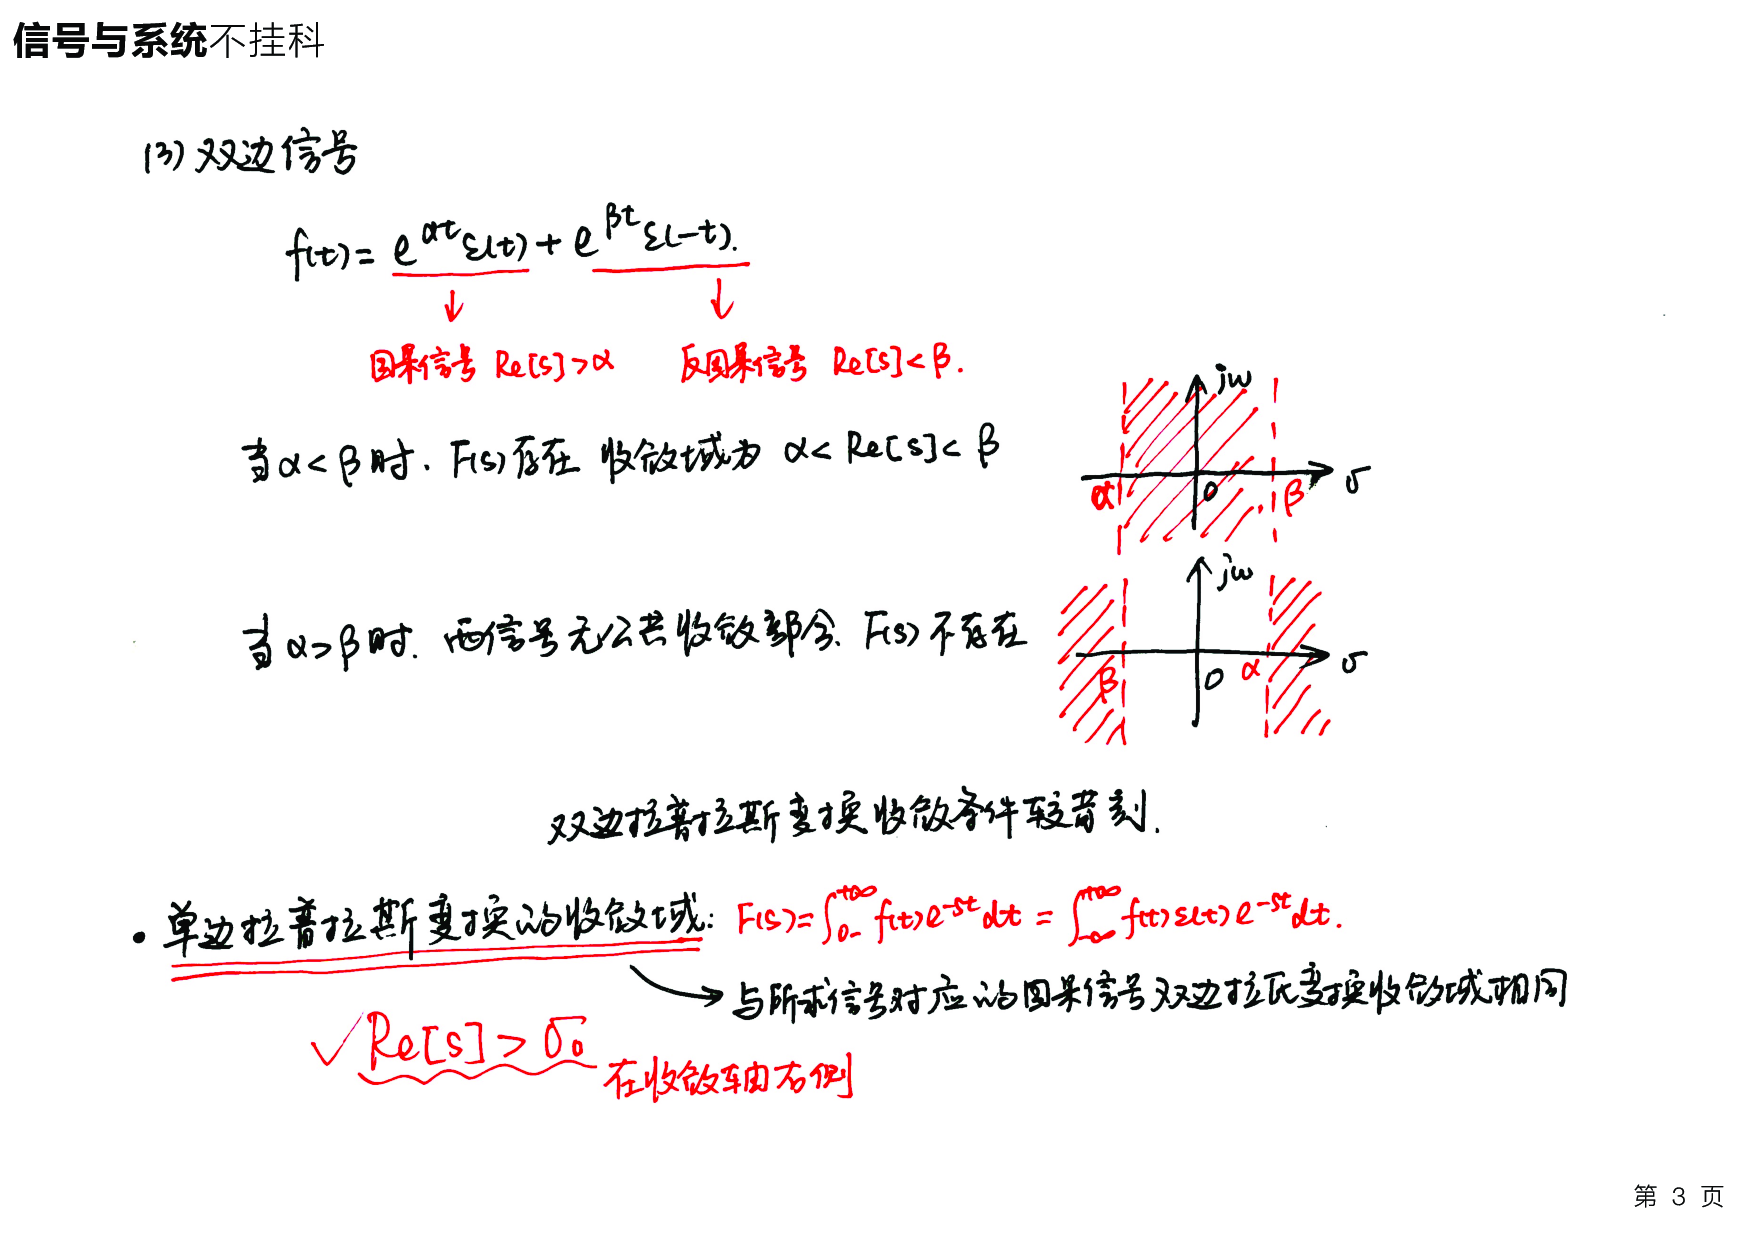 信号与系统不挂科
(3) 双边信号
f(t) = e^{αt}ε(t) + e^{βt}ε(-t).
↓ ↓
因果信号 Re[s]>α 反因果信号 Re[s]<β.
当α<β时. F(s)存在 收敛域为 α< Re[s]< β
jω
α 0 β σ
当α>β时. 两信号无公共收敛部分. F(s) 不存在
jω
β 0 α σ
双边拉普拉斯变换收敛条件较苛刻.
• 单边拉普拉斯变换的收敛域: F(s)=∫_{0-}^{+∞} f(t)e^{-st}dt = ∫_{-∞}^{+∞} f(t)ε(t)e^{-st}dt.
→ 与所求信号对应的因果信号双边拉氏变换收敛域相同
✓ Re[s] > σ₀ 在收敛轴右侧
第 3 页